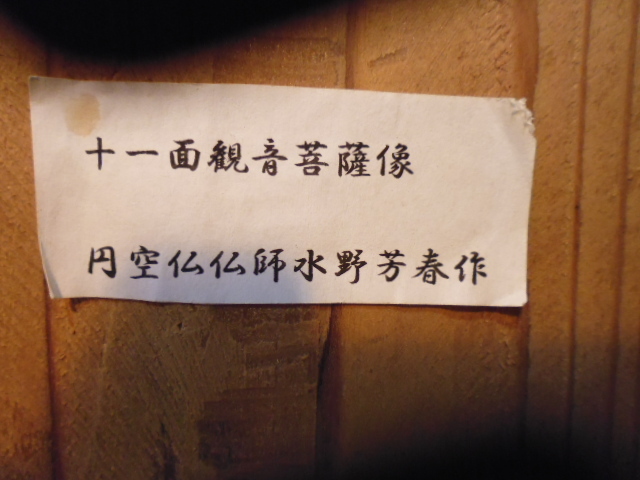 十一面観音菩薩像
円空仏仏師水野芳春作